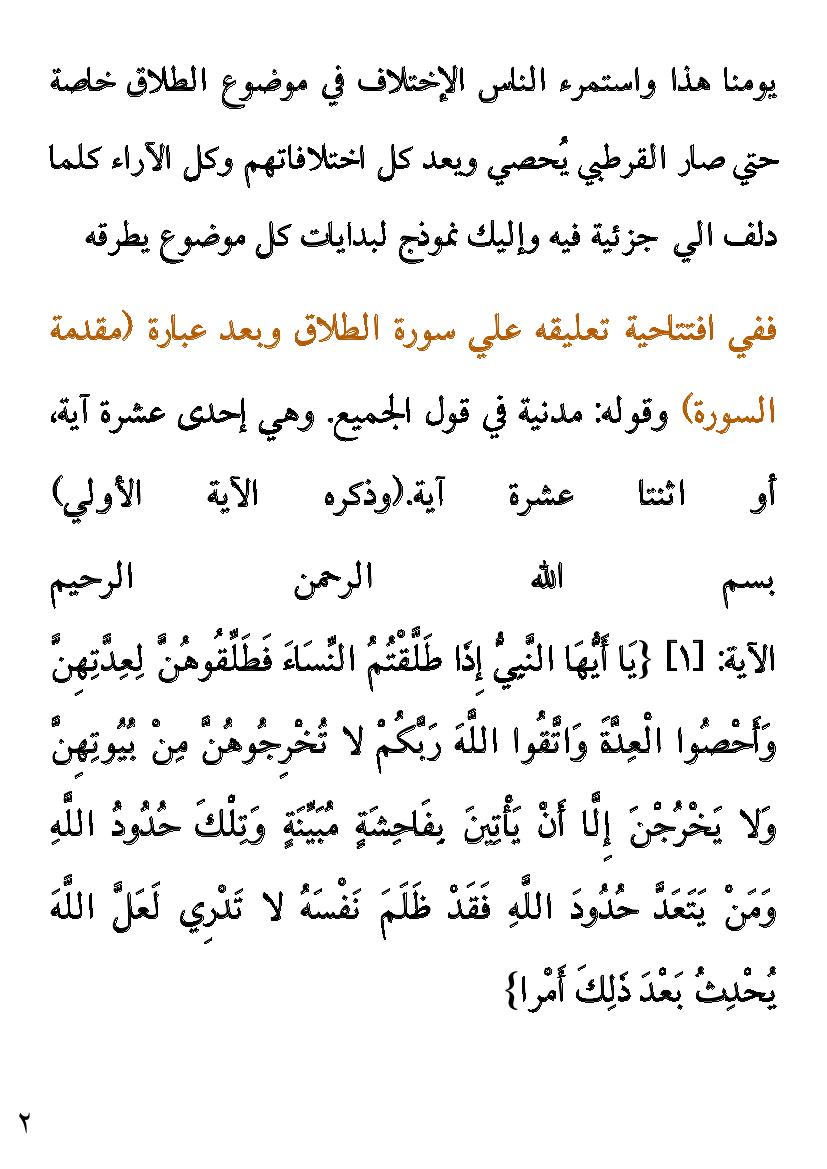 يومنا هذا واستمرء الناس الإختلاف في موضوع الطلاق خاصة
حتي صار القرطبي يُحصي ويعد كل اختلافاتهم وكل الآراء كلما
دلف الي جزئية فيه وإليك نموذج لبدايات كل موضوع يطرقه
ففي افتتاحية تعليقه علي سورة الطلاق وبعد عبارة (مقدمة
السورة) وقوله: مدنية في قول الجميع. وهي إحدى عشرة آية،
أو اثنتا عشرة آية.(وذكره الآية الأولي)
بسم الله الرحمن الرحيم
الآية: [١] {يَا أَيُّهَا النَّبِيُّ إِذَا طَلَّقْتُمُ النِّسَاءَ فَطَلِّقُوهُنَّ لِعِدَّتِهِنَّ
وَأَحْصُوا الْعِدَّةَ وَاتَّقُوا اللَّهَ رَبَّكُمْ لا تُخْرِجُوهُنَّ مِنْ بُيُوتِهِنَّ
وَلا يَخْرُجْنَ إِلَّا أَنْ يَأْتِينَ بِفَاحِشَةٍ مُبَيِّنَةٍ وَتِلْكَ حُدُودُ اللَّهِ
وَمَنْ يَتَعَدَّ حُدُودَ اللَّهِ فَقَدْ ظَلَمَ نَفْسَهُ لا تَدْرِي لَعَلَّ اللَّهَ
يُحْدِثُ بَعْدَ ذَلِكَ أَمْرا}
٢